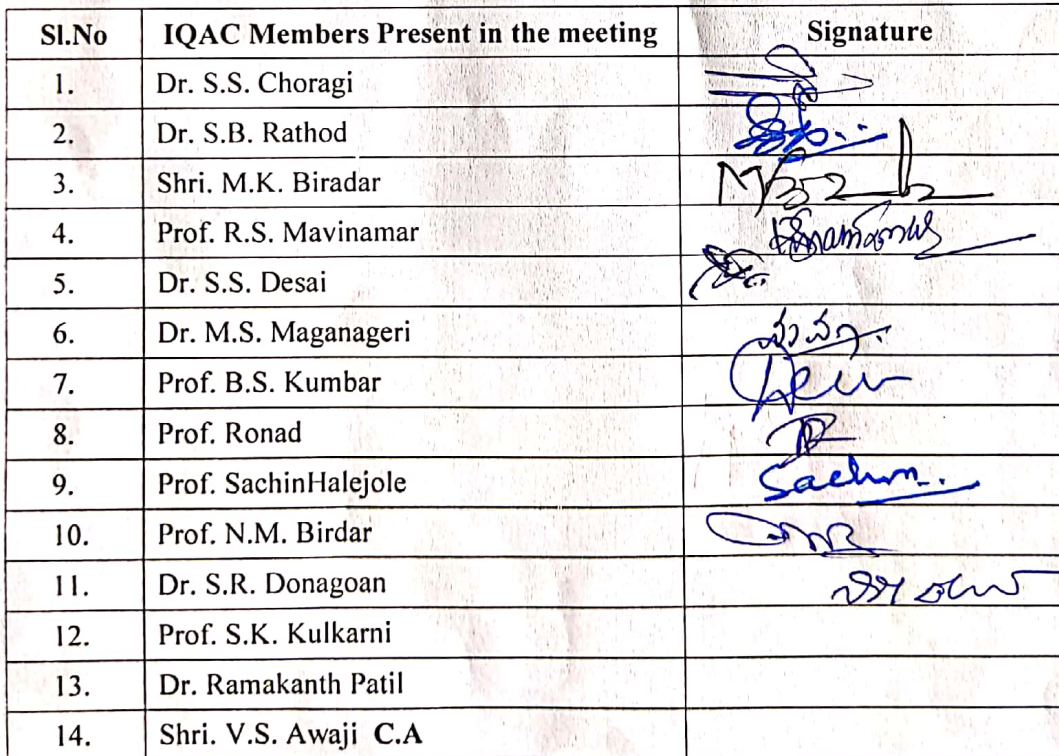 Sl.No IQAC Members Present in the meeting Signature
1. Dr. S.S. Choragi
2. Dr. S.B. Rathod
3. Shri. M.K. Biradar
4. Prof. R.S. Mavinamar
5. Dr. S.S. Desai
6. Dr. M.S. Maganageri
7. Prof. B.S. Kumbar
8. Prof. Ronad
9. Prof. SachinHalejole Sachin.
10. Prof. N.M. Birdar
11. Dr. S.R. Donagoan
12. Prof. S.K. Kulkarni
13. Dr. Ramakanth Patil
14. Shri. V.S. Awaji C.A